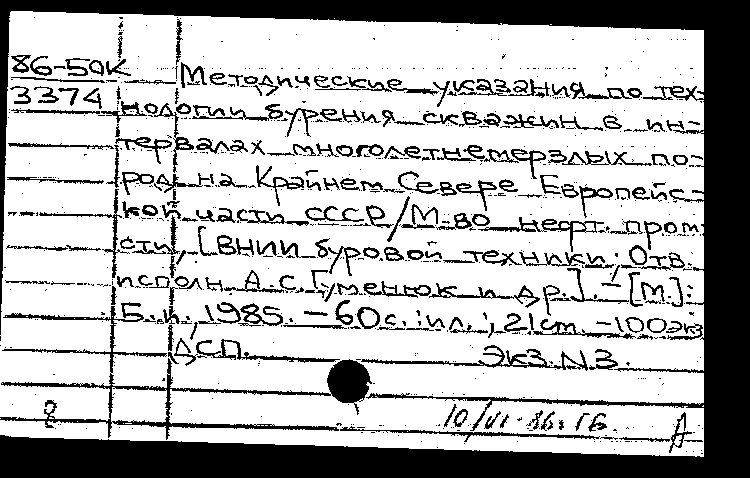 86-5ДК Методические указания по тех-
3374 нологии бурения скважин в ин-
тервалах многолетнемерзлых по-
род на Крайнем Севере Европейс-
кой части СССР/М-во нефт. пром-
сти, [ВНИИ буровой техники; Отв.
исполн. А.С. Гуменюк и др.]. - [М.]:
Б. и., 1985. - 60с. : ил.; 21см. - 100экз
ДСП. Экз. N3.
8 10/VI-86г. ГБ. А